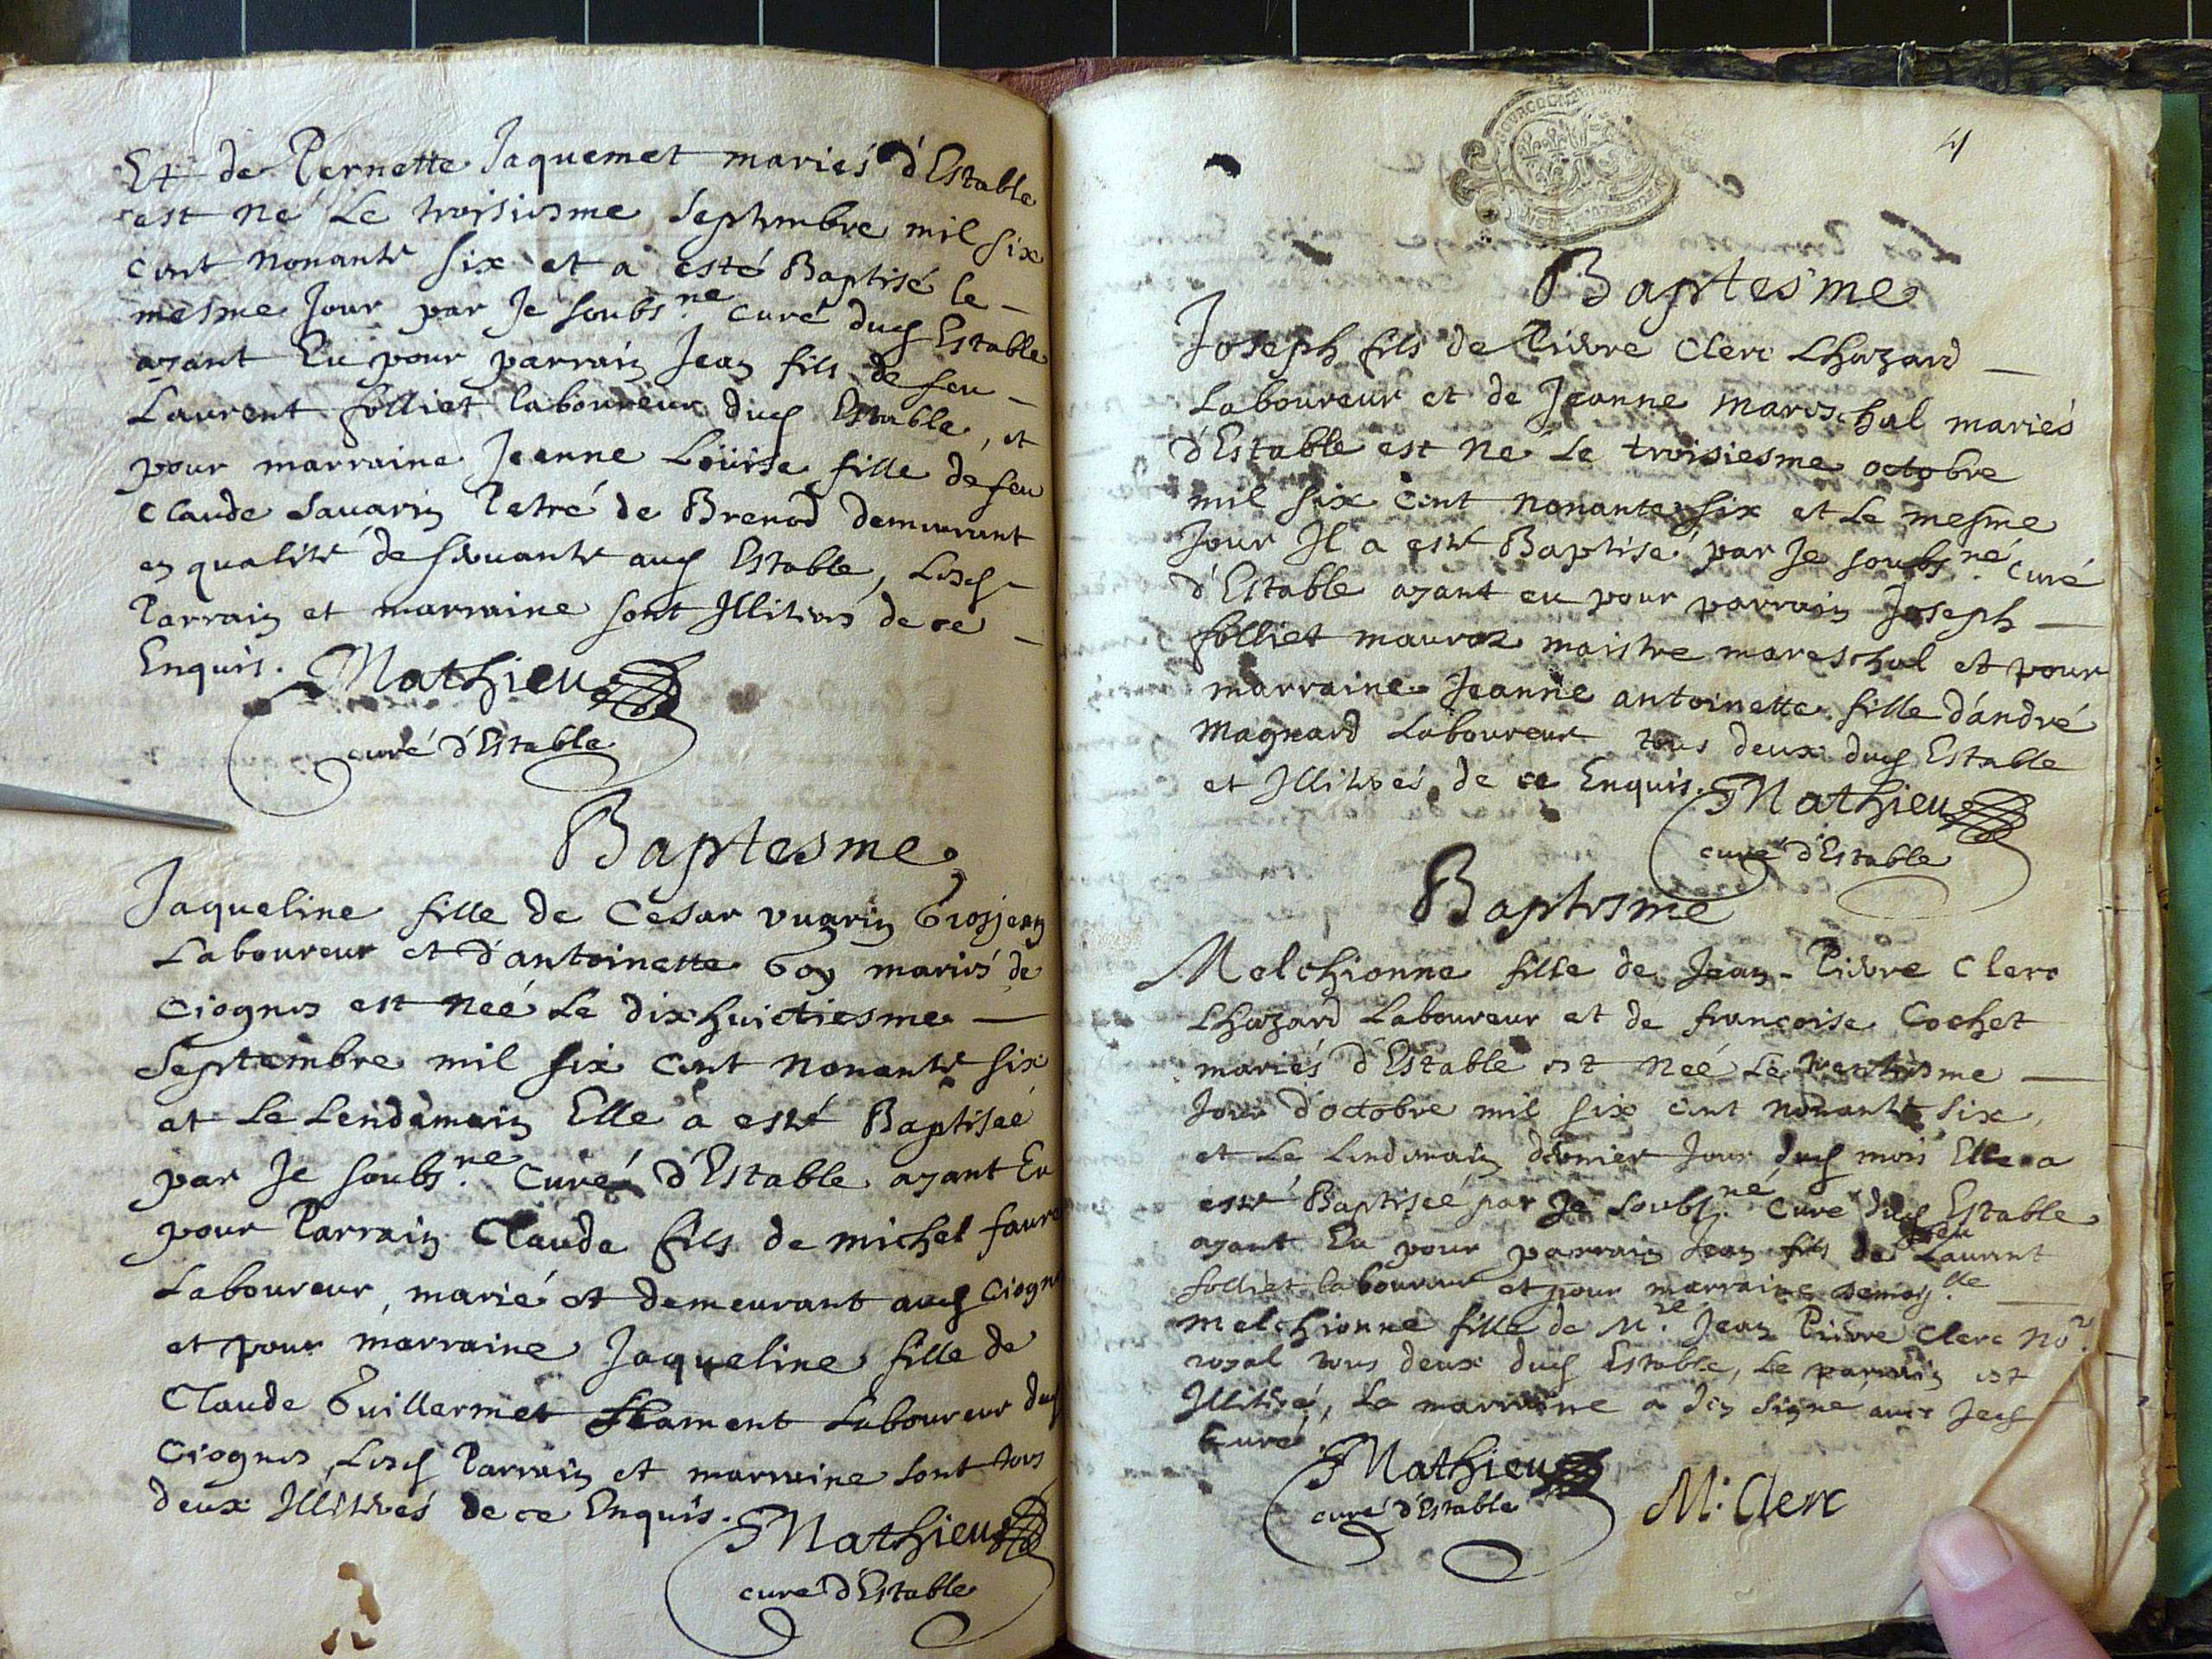 Et de Pernette Jaquemet mariés d'Estable
est né Le troisiesme Septembre mil six
cent nonante six et a esté Baptisé le
mesme Jour par Je soubs.né curé dud Estable
ayant Eu pour parrain Jean fils de feu
Laurent folliet laboureur dud Estable, et
pour marraine Jeanne Loüise fille de feu
Claude Sauarin Petré de Brenod demeurant
en qualité de seruante aud Estable, Lesd
Parrain et marraine sont Illiterés de ce
Enquis. Mathieu
curé d'Estable
Baptesme
Jaqueline fille de Cesar vuarin Grosjean
Laboureur et d'antoinette Goy mariés de
Ciognes est neé Le dixhuictiesme
Septembre mil six cent nonante six
et Le Lendemain Elle a esté Baptiseé
par Je soubs.né Curé d'Estable ayant Eu
pour Parrain Claude fils de michel faure
Laboureur, marié et demeurant aud Ciogn
et pour marraine Jaqueline fille de
Claude Guillermet flament Laboureur dud
Ciognes, Lesd Parrain et marraine sont tous
deux Illiterés de ce Enquis.
Mathieu
curé d'Estable
4
Baptesme
Joseph fils de Pierre Clerc Lhazard
Laboureur et de Jeanne mareschal mariés
d'Estable est né Le troisiesme octobre
mil six cent nonante six et Le mesme
Jour Il a esté Baptisé par Je soubs.né curé
d'Estable ayant eu pour parrain Joseph
folliet mauroz maistre mareschal et pour
marraine Jeanne antoinette fille d'andré
Magnard Laboureur tous deux dud Estable
et Illiterés de ce Enquis. Mathieu
curé d'Estable
Baptesme
Melchionne fille de Jean-Pierre Clerc
Lhazard Laboureur et de françoise Cochet
mariés d'Estable est neé Le trentiesme
Jour d'octobre mil six cent nonante six,
et Le Lendemain dernier Jour dud mois Elle a
esté Baptiseé par Je soubs.né Curé dud Estable
ayant Eu pour parrain Jean fils de feu Laurent
folliet laboureur et pour marraine demoy.lle
melchionne fille de M.re Jean Pierre Clerc No.re
royal tous deux dud Estable, Le parrain est
Illiteré, La marraine a bien signé auec Jed
Curé. Mathieu
curé d'Estable
M. Clerc